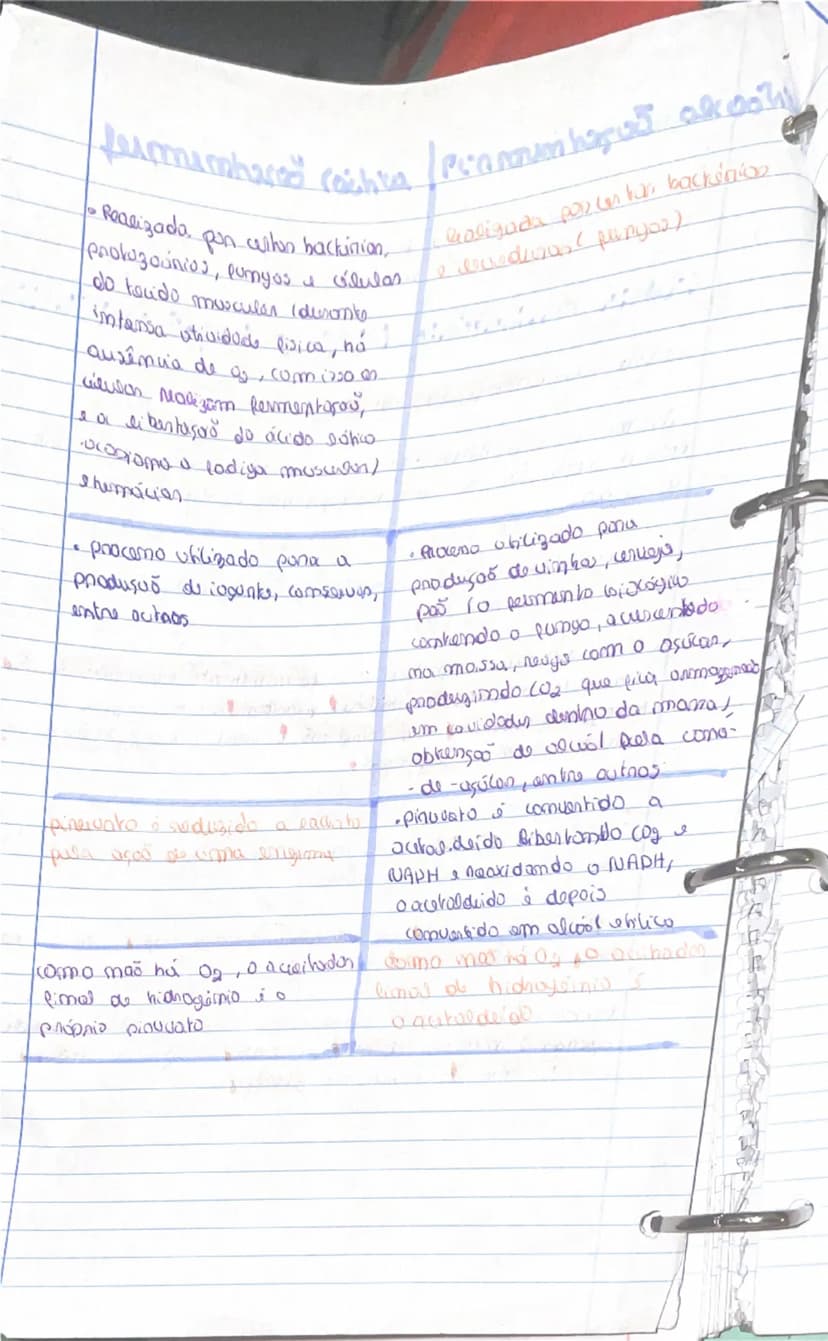 fermentação láctica
fermentação alcoóli
• Realizada por certas bactérias,
protozoários, fungos e células
do tecido muscular (durante
intensa atividade física, há
ausência de O2, com isso as
células realizam fermentação,
e a libertação do ácido lático
ocasiona a fadiga muscular)
e hemácias
Realizada por certas bactérias
e leveduras (fungos)
• processo utilizado para a
produção de iogurte, conservas,
entre outros
• Processo utilizado para
produção de vinhos, cerveja,
pão (o fermento biológico
contendo o fungo, acrescentado
na massa, reage com o açúcar,
produzindo CO2 que fica armazenado
em cavidades dentro da massa)
obtenção de álcool pela cana-
-de-açúcar, entre outros
piruvato é reduzido a lactato
pela ação de uma enzima
• piruvato é convertido a
acetaldeído libertando CO2 e
NADH e reoxidando o NADH,
o acetaldeído é depois
convertido em alcoól etílico
como não há O2, o aceitador
final de hidrogénio é o
próprio piruvato
como não há O2, o aceitador
final de hidrogénio é
o acetaldeído